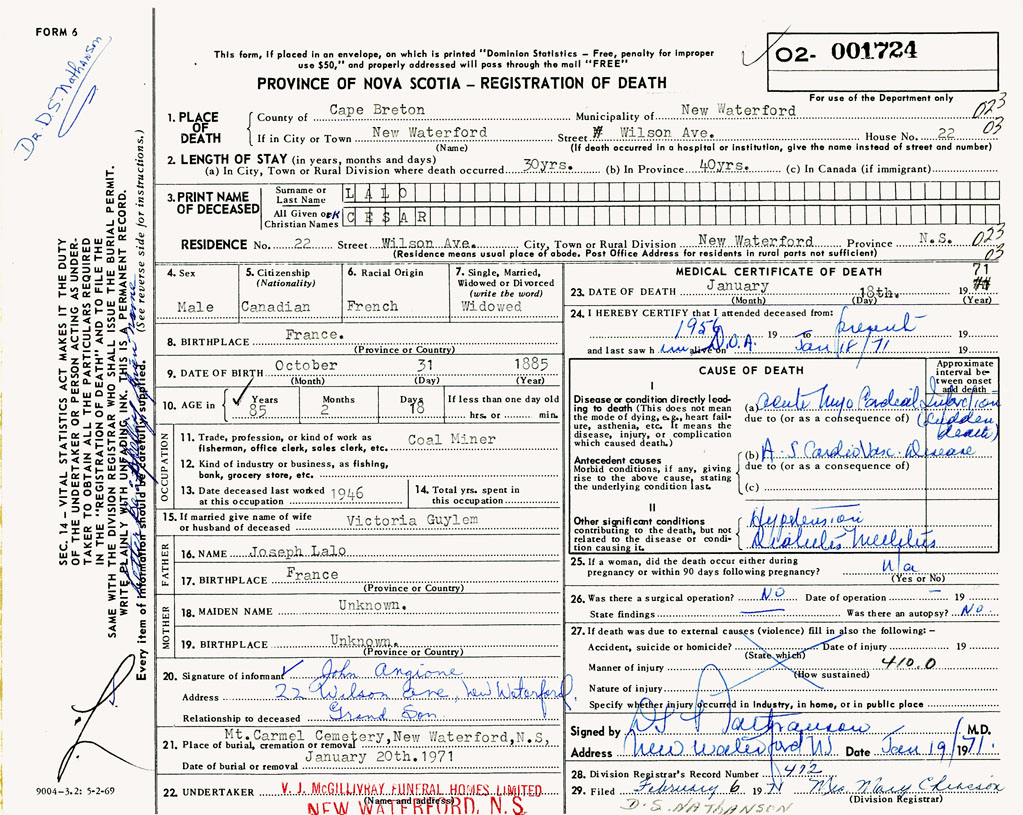 FORM 6
DR. D.S. Nathanson
This form, if placed in an envelope, on which is printed "Dominion Statistics – Free, penalty for improper
use $50," and properly addressed will pass through the mail "FREE"
O2- 001724
PROVINCE OF NOVA SCOTIA – REGISTRATION OF DEATH
For use of the Department only
1. PLACE OF DEATH
County of Cape Breton Municipality of New Waterford 023
If in City or Town New Waterford Street # Wilson Ave. House No. 22 03
(Name) (If death occurred in a hospital or institution, give the name instead of street and number)
2. LENGTH OF STAY (in years, months and days)
(a) In City, Town or Rural Division where death occurred 30yrs. (b) In Province 40yrs. (c) In Canada (if immigrant)
3. PRINT NAME OF DECEASED
Surname or Last Name LALO
All Given or Christian Names CESAR
RESIDENCE No. 22 Street Wilson Ave. City, Town or Rural Division New Waterford Province N.S. 023
(Residence means usual place of abode. Post Office Address for residents in rural parts not sufficient) 03
4. Sex
Male
5. Citizenship
(Nationality)
Canadian
6. Racial Origin
French
7. Single, Married,
Widowed or Divorced
(write the word)
Widowed
8. BIRTHPLACE France.
(Province or Country)
9. DATE OF BIRTH October 31 1885
(Month) (Day) (Year)
10. AGE in Years Months Days If less than one day old
85 2 18 hrs. or min.
OCCUPATION
11. Trade, profession, or kind of work as Coal Miner
fisherman, office clerk, sales clerk, etc.
12. Kind of industry or business, as fishing,
bank, grocery store, etc.
13. Date deceased last worked 1946
at this occupation
14. Total yrs. spent in
this occupation
15. If married give name of wife
or husband of deceased Victoria Guylem
FATHER
16. NAME Joseph Lalo
17. BIRTHPLACE France
(Province or Country)
MOTHER
18. MAIDEN NAME Unknown.
19. BIRTHPLACE Unknown.
(Province or Country)
20. Signature of informant John Angione
Address 22 Wilson Ave, New Waterford
Relationship to deceased Grand Son
Mt.Carmel Cemetery,New Waterford,N.S,
21. Place of burial, cremation or removal
Date of burial or removal January 20th.1971
22. UNDERTAKER V. J. McGILLIVRAY FUNERAL HOMES LIMITED
(Name and address)
NEW WATERFORD, N. S.
MEDICAL CERTIFICATE OF DEATH
23. DATE OF DEATH January 18th. 19 71
(Month) (Day) (Year)
24. I HEREBY CERTIFY that I attended deceased from:
1956 19 to present 19
and last saw h im alive on D.O.A. Jan 18/71 19
CAUSE OF DEATH
Approximate
interval be-
tween onset
and death
I
Disease or condition directly lead-
ing to death (This does not mean
the mode of dying, e.g., heart fail-
ure, asthenia, etc. It means the
disease, injury, or complication
which caused death.)
(a) acute Myocardial Infarction
due to (or as a consequence of) (sudden
death)
Antecedent causes
Morbid conditions, if any, giving
rise to the above cause, stating
the underlying condition last.
(b) A.S Cardio Vasc. Disease
due to (or as a consequence of)
(c)
II
Other significant conditions
contributing to the death, but not
related to the disease or condi-
tion causing it.
Hypertension
Diabetes Mellitis
25. If a woman, did the death occur either during
pregnancy or within 90 days following pregnancy? n/a
(Yes or No)
26. Was there a surgical operation? NO Date of operation – 19
State findings — Was there an autopsy? NO
27. If death was due to external causes (violence) fill in also the following: –
Accident, suicide or homicide? Date of injury 19
(State which)
Manner of injury 410.0
(How sustained)
Nature of injury
Specify whether injury occurred in Industry, in home, or in public place
Signed by D S Nathanson M.D.
Address New Waterford Date Jan 19/ 1971.
28. Division Registrar's Record Number 472
29. Filed February 6 1971 Mrs. Mary
(Division Registrar)
D.S. NATHANSON
SEC. 14 – VITAL STATISTICS ACT MAKES IT THE DUTY
OF THE UNDERTAKER OR PERSON ACTING AS UNDER-
TAKER TO OBTAIN ALL THE PARTICULARS REQUIRED
IN THE "REGISTRATION OF DEATH" AND TO FILE THE
SAME WITH THE DIVISION REGISTRAR WHO SHALL ISSUE THE BURIAL PERMIT.
WRITE PLAINLY WITH UNFADING INK. THIS IS A PERMANENT RECORD.
Every item of information should be carefully supplied. (See reverse side for instructions.)
9004–3.2: 5-2-69